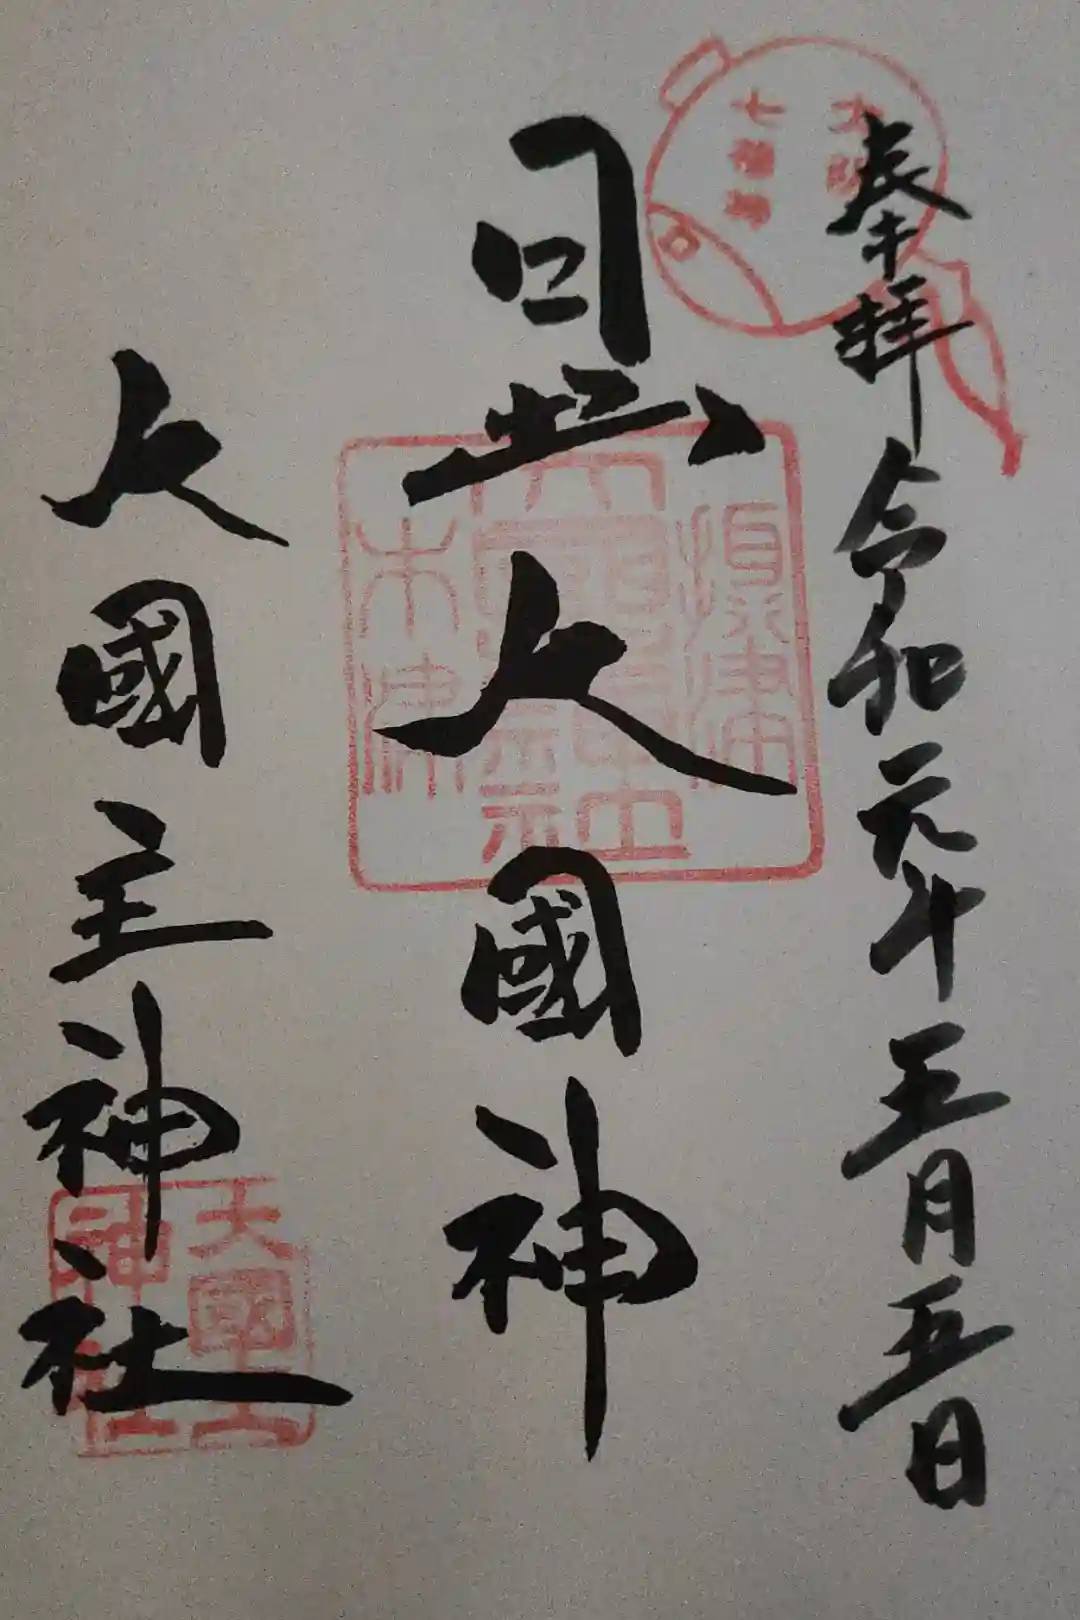 大阪
七福神
奉拝 令和元年五月五日
日出大國神
大國主神社
木津
大國主
神社